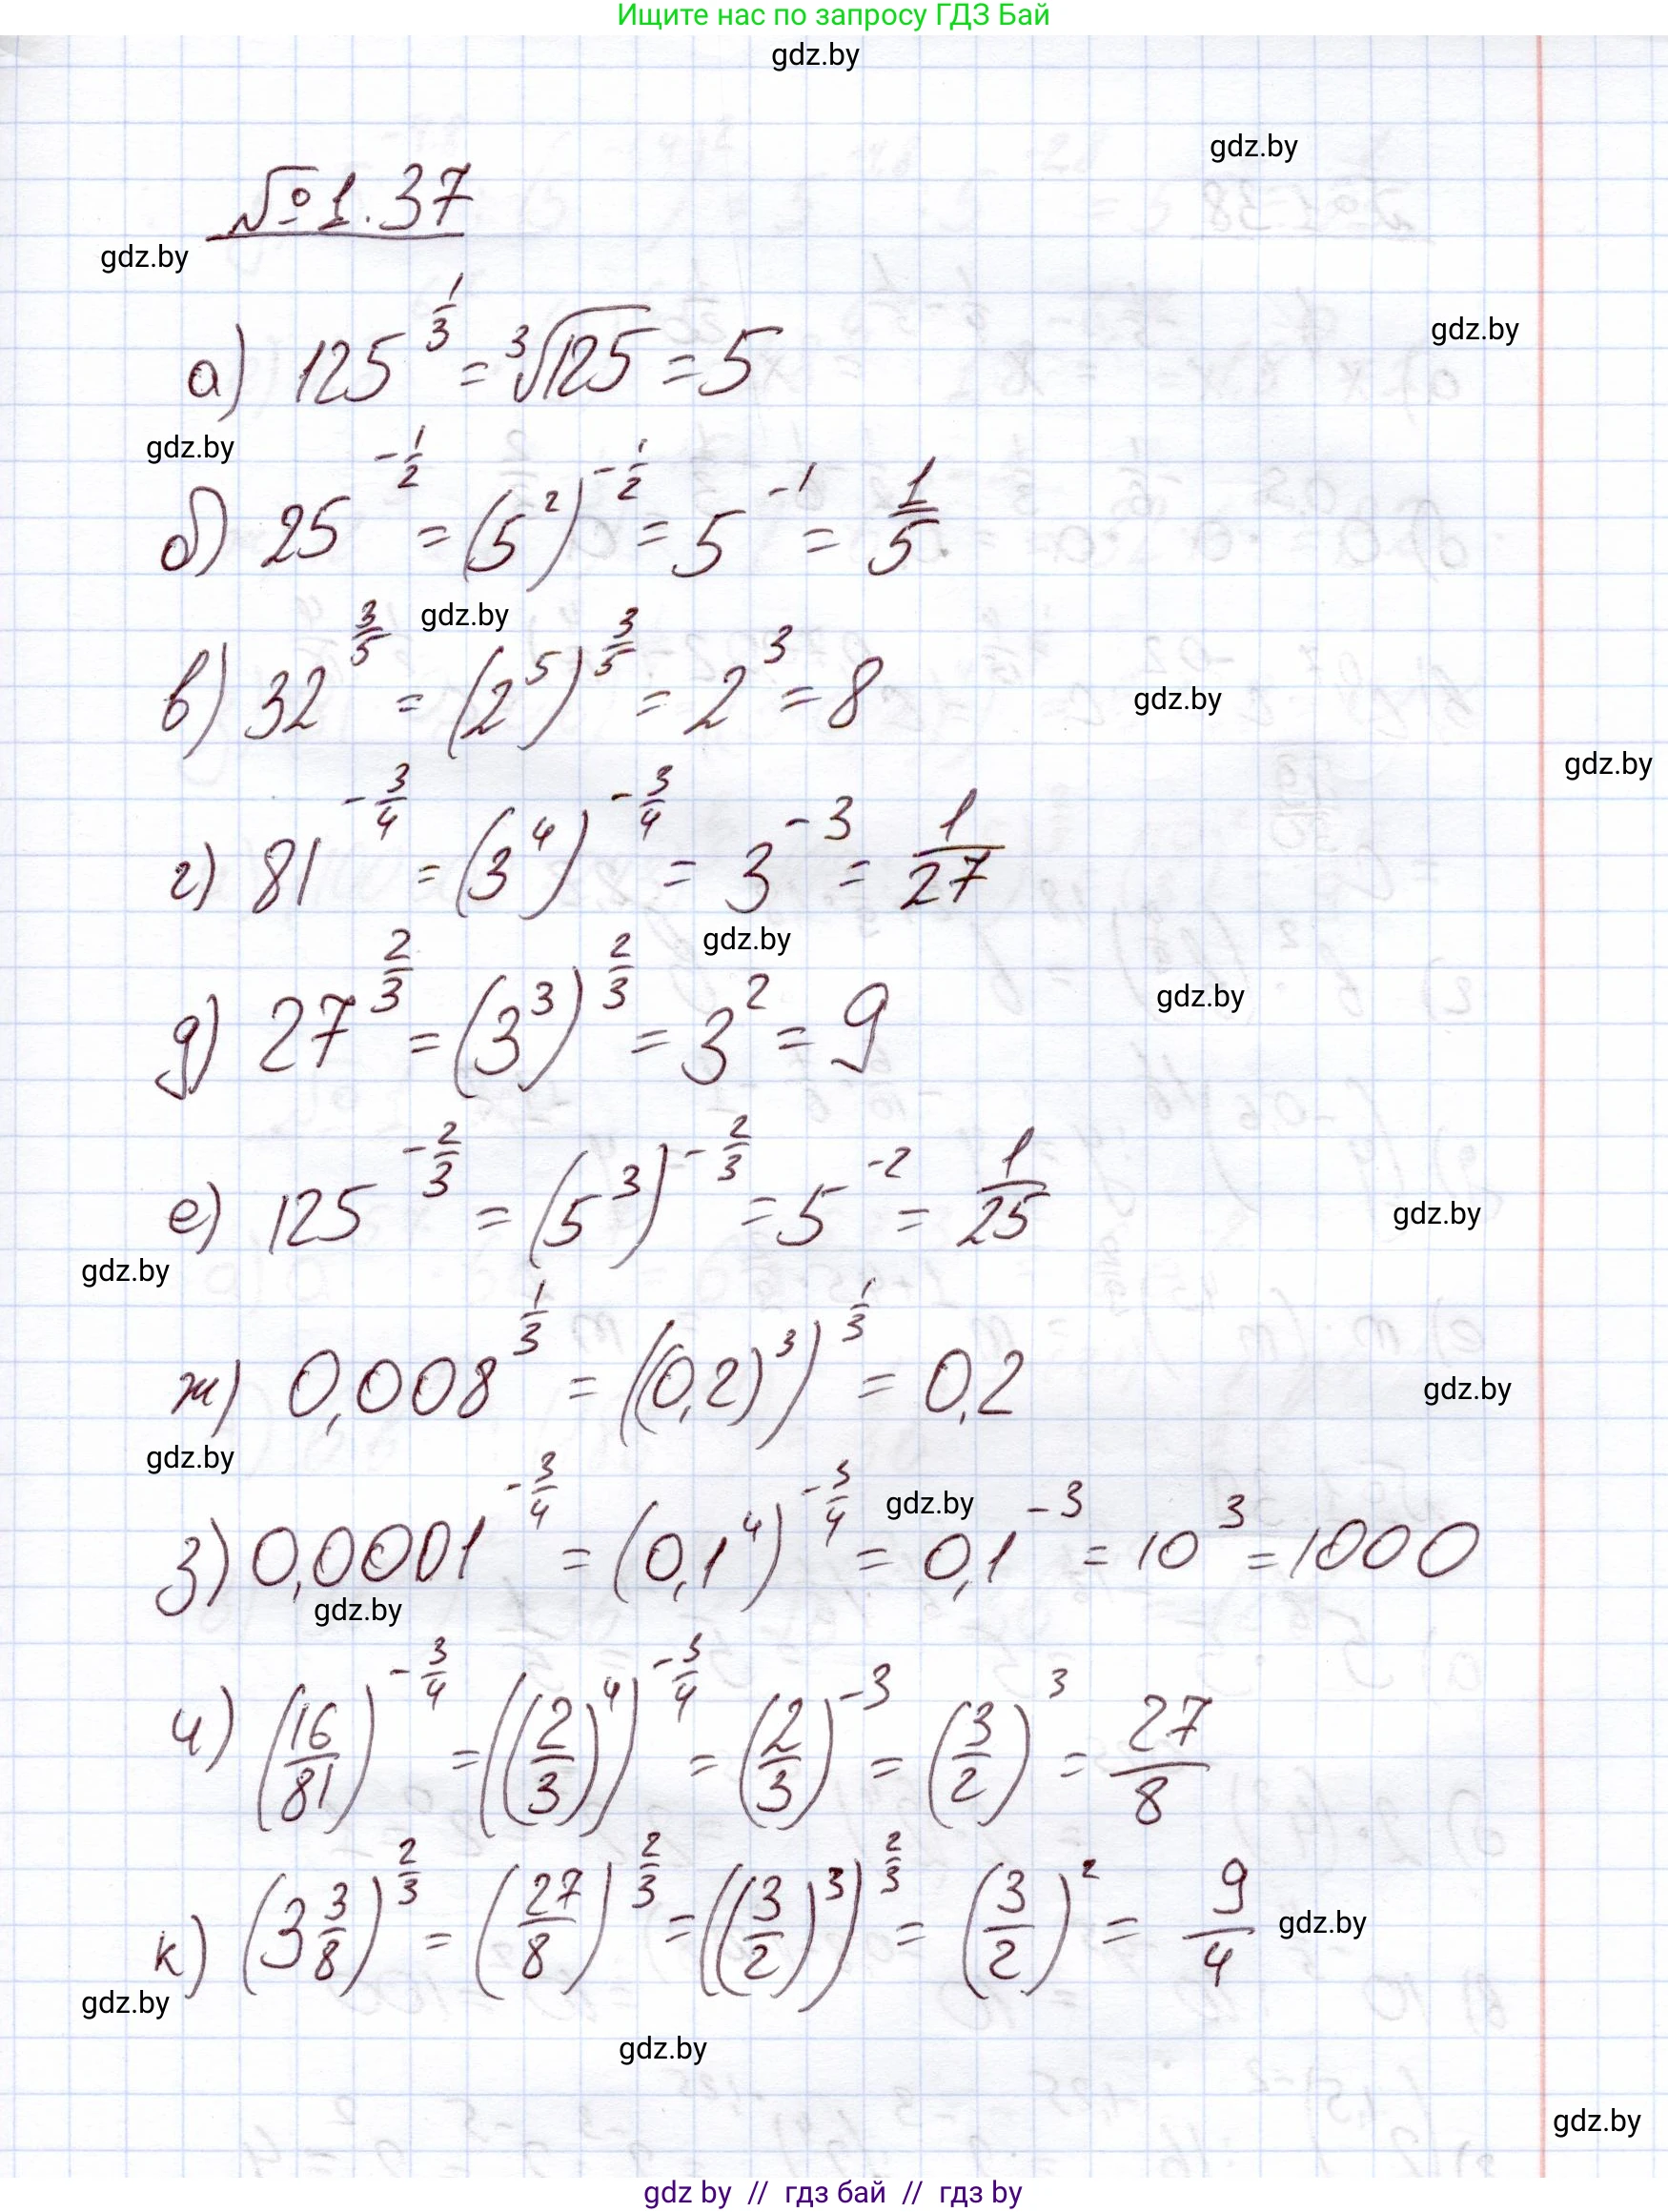 Ищите нас по запросу ГДЗ Бай
gdz.by
gdz.by
№1.37
gdz.by
gdz.by
а) 125^{1/3} = ∛125 = 5
gdz.by
б) 25^{-1/2} = (5^2)^{-1/2} = 5^{-1} = 1/5
gdz.by
в) 32^{3/5} = (2^5)^{3/5} = 2^3 = 8
gdz.by
gdz.by
г) 81^{-3/4} = (3^4)^{-3/4} = 3^{-3} = 1/27
gdz.by
gdz.by
д) 27^{2/3} = (3^3)^{2/3} = 3^2 = 9
е) 125^{-2/3} = (5^3)^{-2/3} = 5^{-2} = 1/25
gdz.by
gdz.by
ж) 0,008^{1/3} = ((0,2)^3)^{1/3} = 0,2
gdz.by
gdz.by
gdz.by
з) 0,0001^{-3/4} = (0,1^4)^{-3/4} = 0,1^{-3} = 10^3 = 1000
gdz.by
и) (16/81)^{-3/4} = ((2/3)^4)^{-3/4} = (2/3)^{-3} = (3/2)^3 = 27/8
к) (3 3/8)^{2/3} = (27/8)^{2/3} = ((3/2)^3)^{2/3} = (3/2)^2 = 9/4
gdz.by
gdz.by
gdz.by
gdz.by
gdz by // гдз бай // гдз by